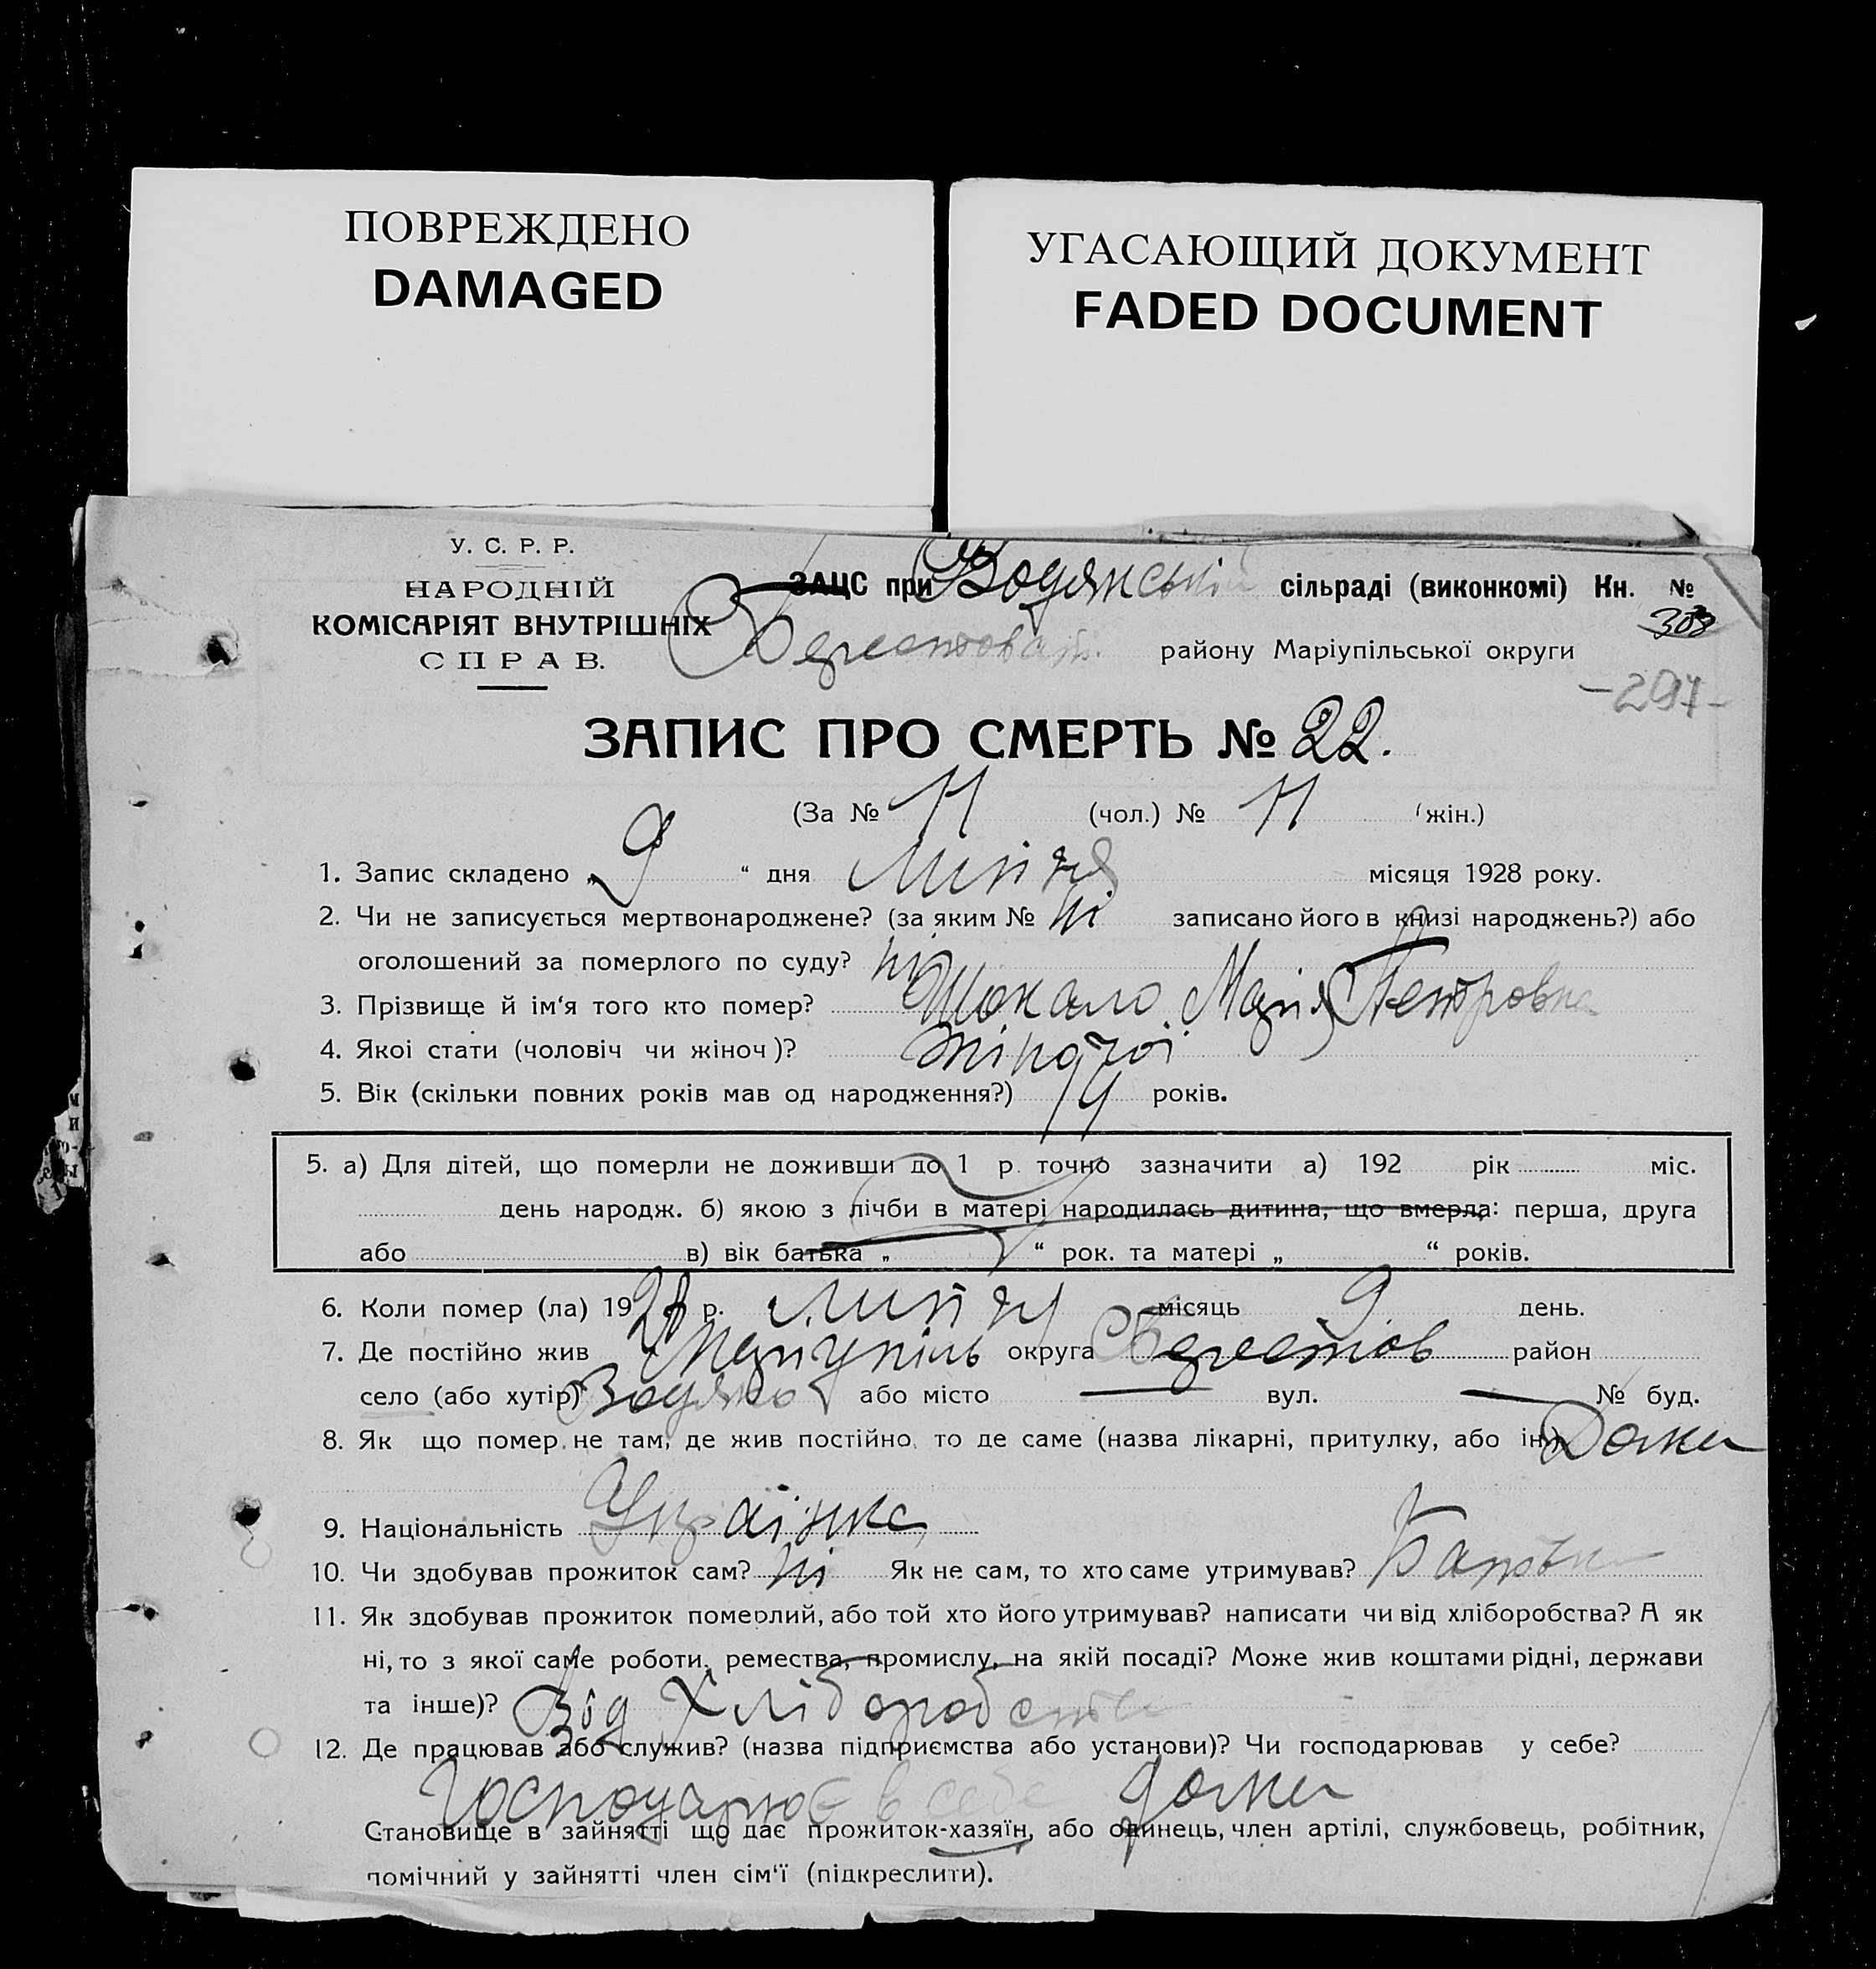 ПОВРЕЖДЕНО
DAMAGED
УГАСАЮЩИЙ ДОКУМЕНТ
FADED DOCUMENT
У. С. Р. Р.
НАРОДНІЙ
КОМІСАРІЯТ ВНУТРІШНІХ
СПРАВ.
ЗАЦС при Водянській сільраді (виконкомі) Кн. №
308
району Маріупільської округи
-297-
ЗАПИС ПРО СМЕРТЬ № 22.
(За № 11 (чол.) № 11 (жін.)
1. Запис складено „ 9 “ дня Липня місяця 1928 року.
2. Чи не записується мертвонароджене? (за яким № ні записано його в книзі народжень?) або
оголошений за померлого по суду? ні
3. Прізвище й ім‘я того кто помер? Шокало Марія Петровна
4. Якоі стати (чоловіч чи жіноч)? жіночоі
5. Вік (скільки повних років мав од народження?) 19 років.
5. а) Для дітей, що померли не доживши до 1 р. точно зазначити а) 192 рік міс.
день народж. б) якою з лічби в матері народилась дитина, що вмерла: перша, друга
або в) вік батька „ “ рок. та матері „ “ років.
6. Коли помер (ла) 1928 р. липня місяць 9 день.
7. Де постійно жив Маріупіль округа Берестов район
село (або хутір) Водяно або місто — вул. — № буд.
8. Як що помер не там, де жив постійно то де саме (назва лікарні, притулку, або ін.) Дома
9. Національність Українка
10. Чи здобував прожиток сам? ні Як не сам, то хто саме утримував? Батьки
11. Як здобував прожиток померлий, або той хто його утримував? написати чи від хліборобства? А як
ні, то з якої саме роботи, ремества, промислу, на якій посаді? Може жив коштами рідні, держави
та інше)? Від Хліборобства
12. Де працював або служив? (назва підприємства або установи)? Чи господарював у себе?
Господарює в себе дома
Становище в зайнятті що дає прожиток-хазяїн, або одинець, член артілі, службовець, робітник,
помічний у зайнятті член сім‘ї (підкреслити).